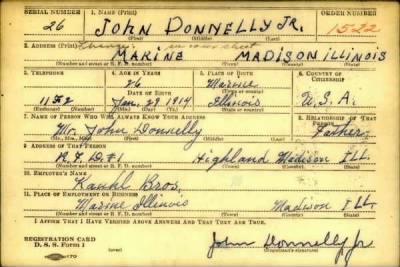 SERIAL NUMBER 1. NAME (Print) ORDER NUMBER
26 JOHN DONNELLY JR. 1522
2. ADDRESS (Print)
MARINE MADISON ILLINOIS
(Number and street or R. F. D. number) (Town) (County) (State)
3. TELEPHONE 4. AGE IN YEARS 5. PLACE OF BIRTH 6. COUNTRY OF CITIZENSHIP
26 Marine
DATE OF BIRTH
11F2 Jan. 29 1914 Illinois U.S.A.
(Exchange) (Number) (Mo.) (Day) (Yr.) (State or country)
7. NAME OF PERSON WHO WILL ALWAYS KNOW YOUR ADDRESS 8. RELATIONSHIP OF THAT PERSON
Mr. John Donnelly Father
9. ADDRESS OF THAT PERSON
R.F.D.#1 Highland Madison ILL.
(Number and street or R. F. D. number) (Town) (County) (State)
10. EMPLOYER'S NAME
Bros.
11. PLACE OF EMPLOYMENT OR BUSINESS
Marine Illinois Madison ILL.
(Number and street or R. F. D. number) (Town) (County) (State)
I AFFIRM THAT I HAVE VERIFIED ABOVE ANSWERS AND THAT THEY ARE TRUE.
REGISTRATION CARD
D. S. S. Form 1 John Donnelly Jr
(Registrant's signature)